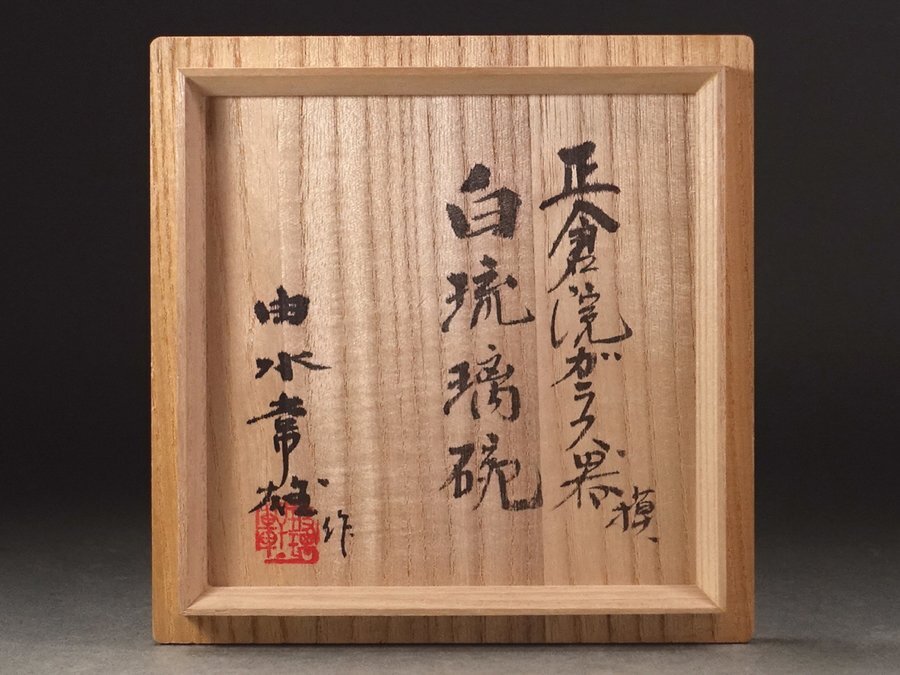 正倉院ガラス器模、
白琉璃碗
由水常雄作